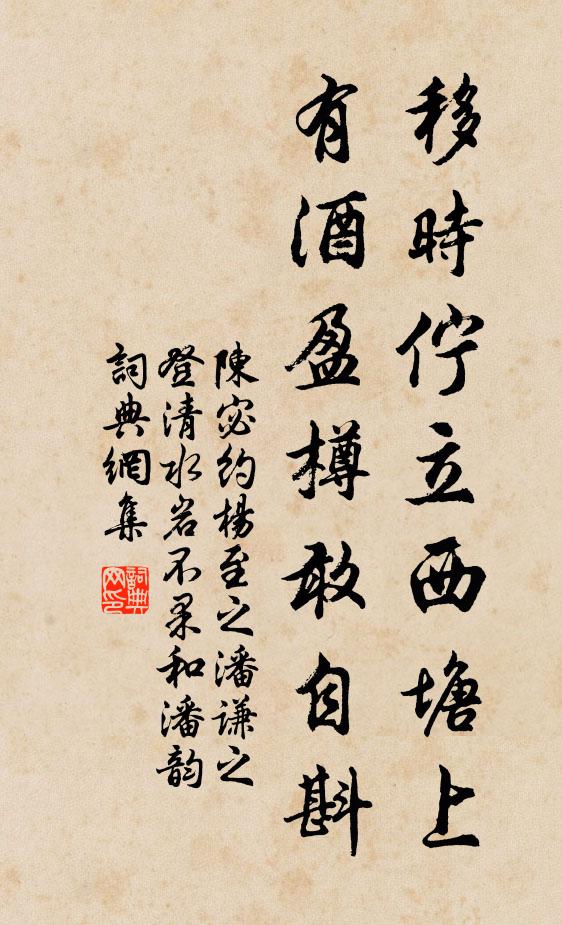 移時佇立西塘上
有酒盈樽敢自斟
陳宓約楊至之潘謙之
登清水岩不果和潘韵
詞典網集
詞典
网印